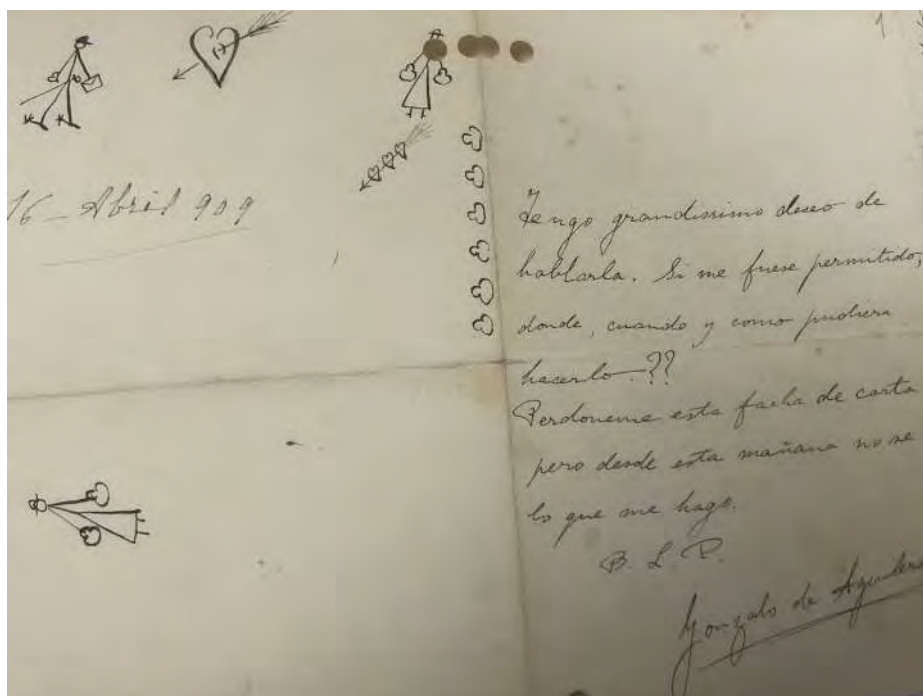 16 - Abril 909
1
Tengo grandissimo deseo de
hablarla. Si me fuese permitido,
donde, cuando y como pudiera
hacerlo -??
Perdoneme esta facha de carta
pero desde esta mañana no se
lo que me hago.
B. L. P.
Gonzalo de Aguilera